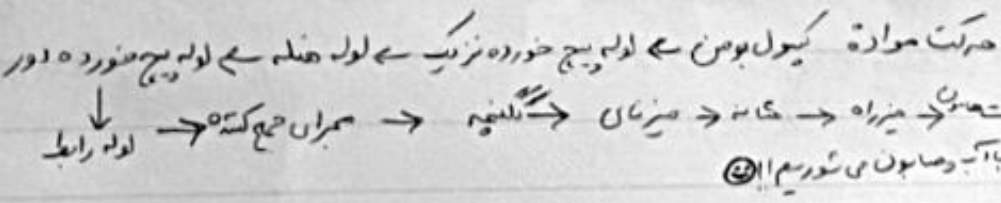 حرکت مواد: کپسول بومن ← لوله پیچ خورده نزدیک ← لوله هنله ← لوله پیچ خورده دور
↓
لوله رابط → مجرای جمع کننده → لگنچه → میزنای → مثانه → میزراه →
با آب و صابون می شوریم!! ☺